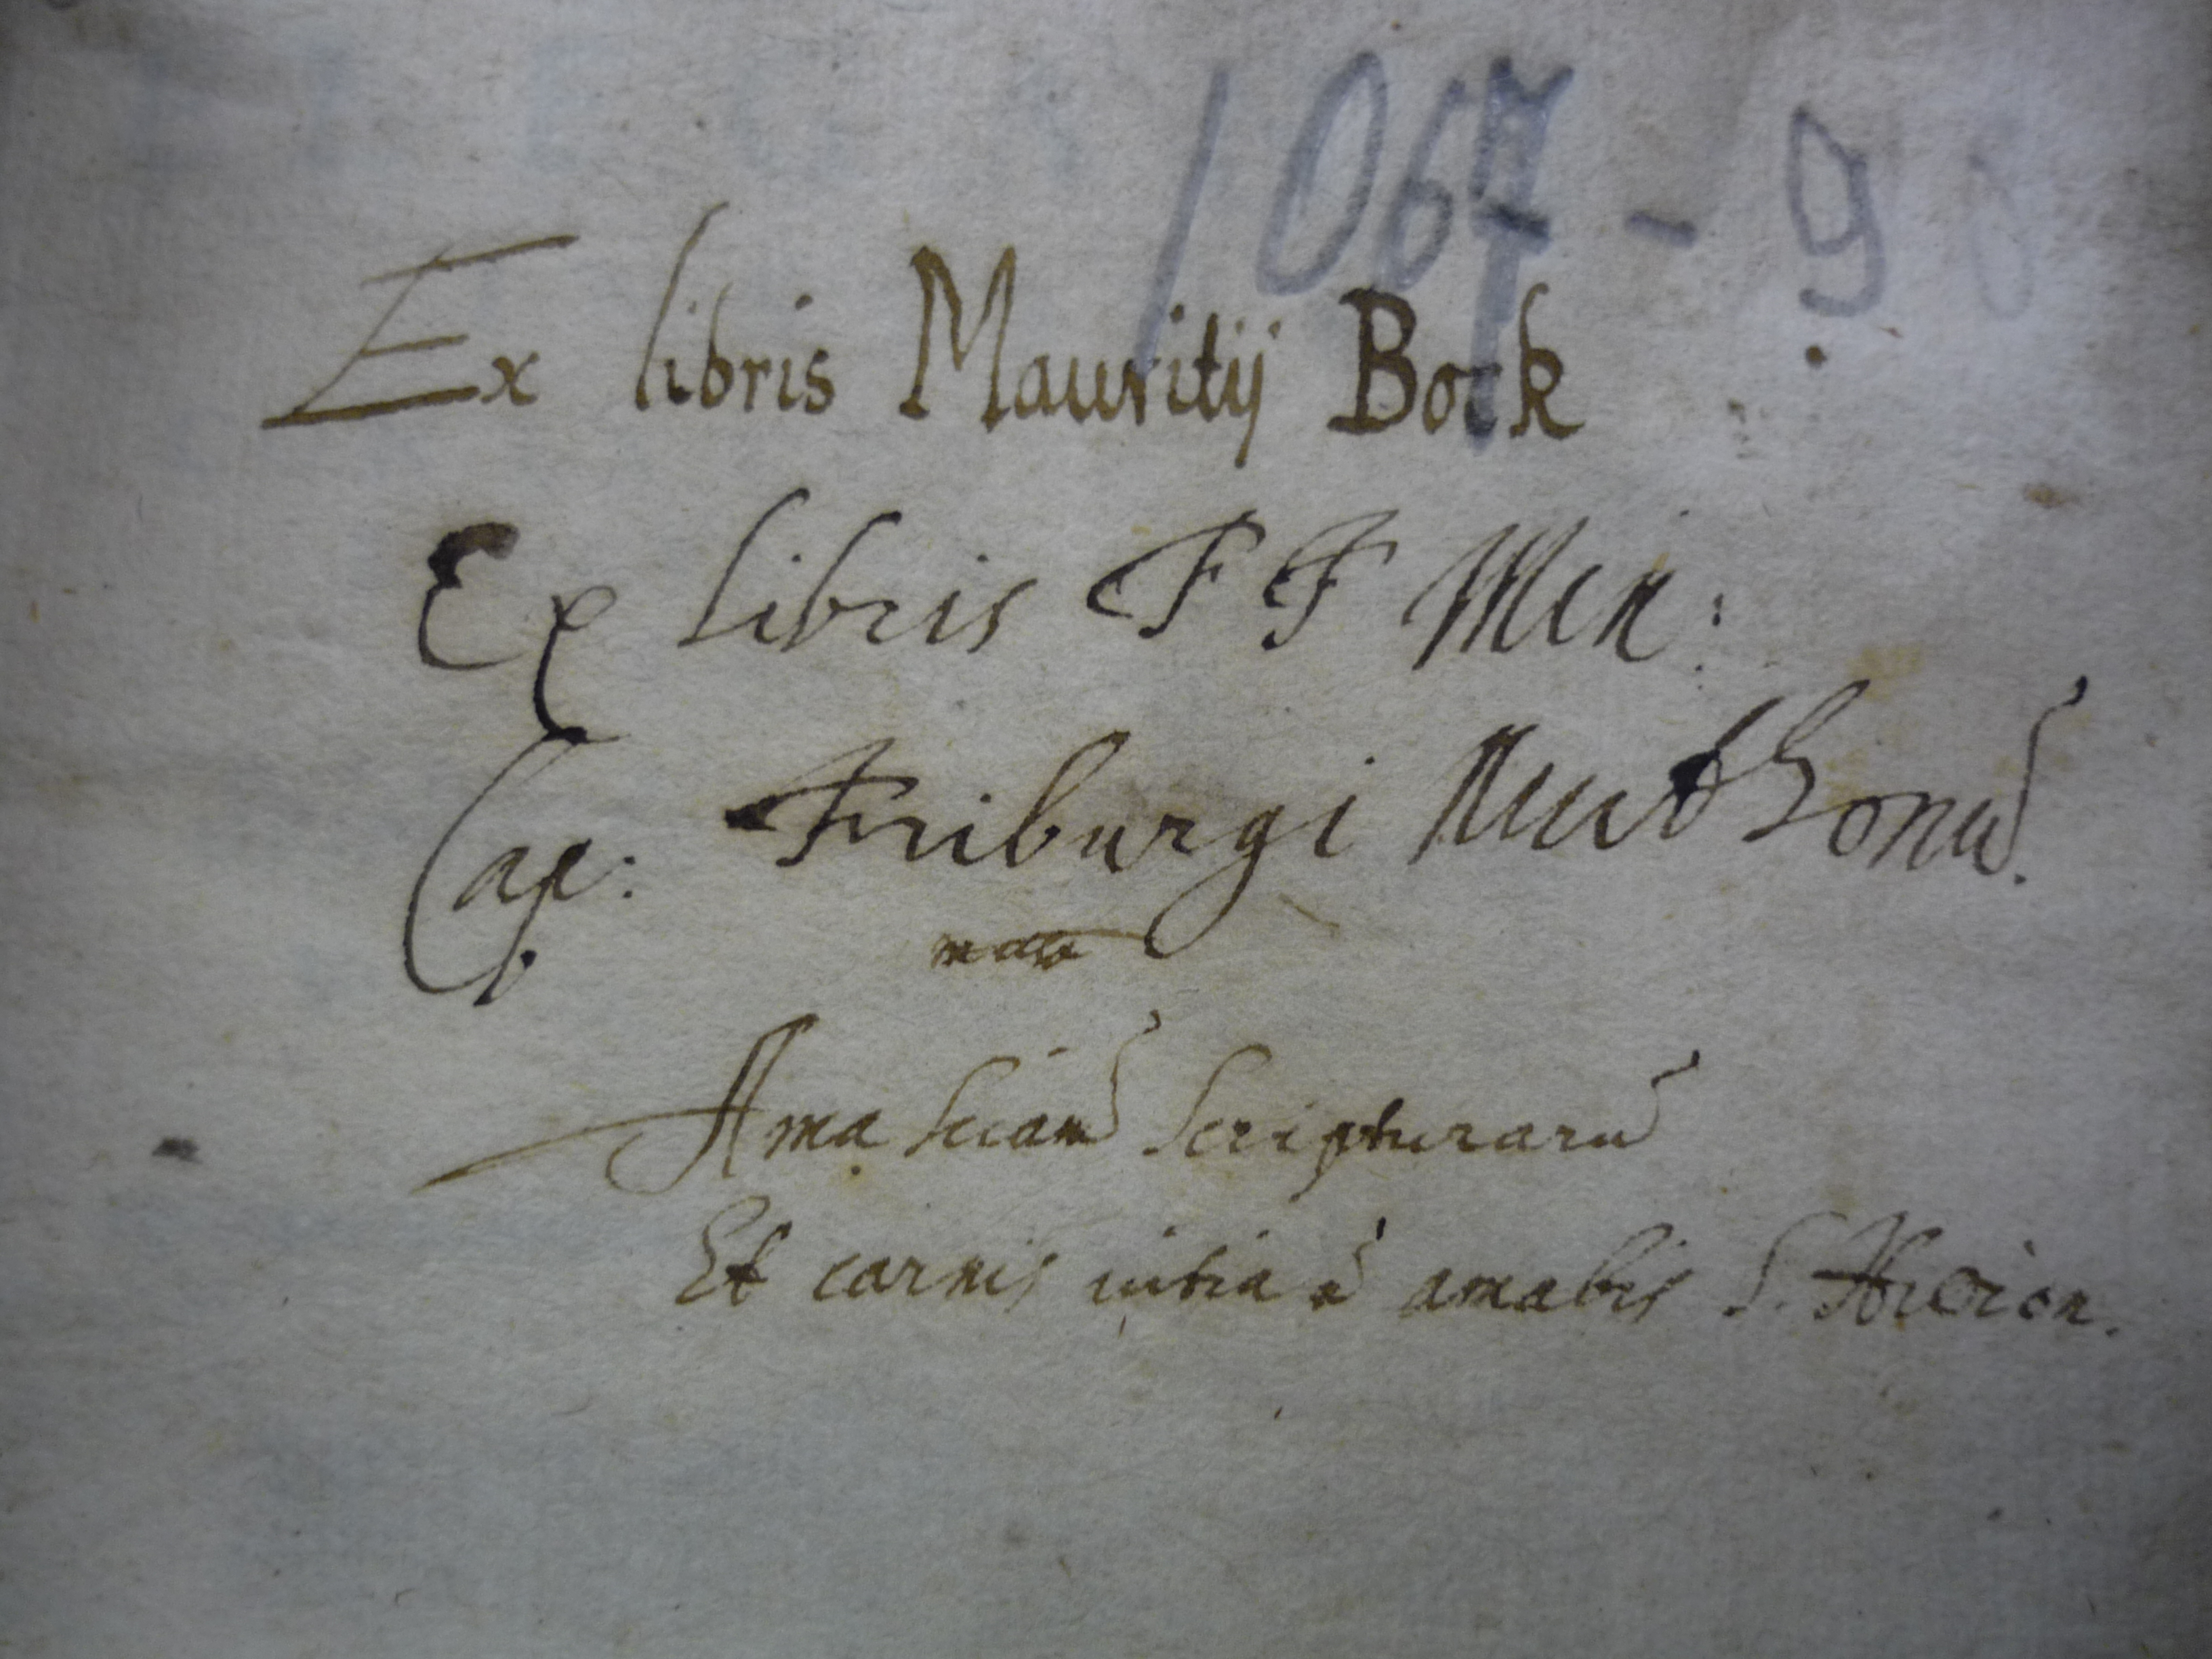 1067 - 98
Ex libris Mauritij Bock
Ex libris F F Min:
Cap: Friburgi Nuithonū.
Ama sciam̄ scripturarū
Et carnis uitia nō amabis S. Hieron.